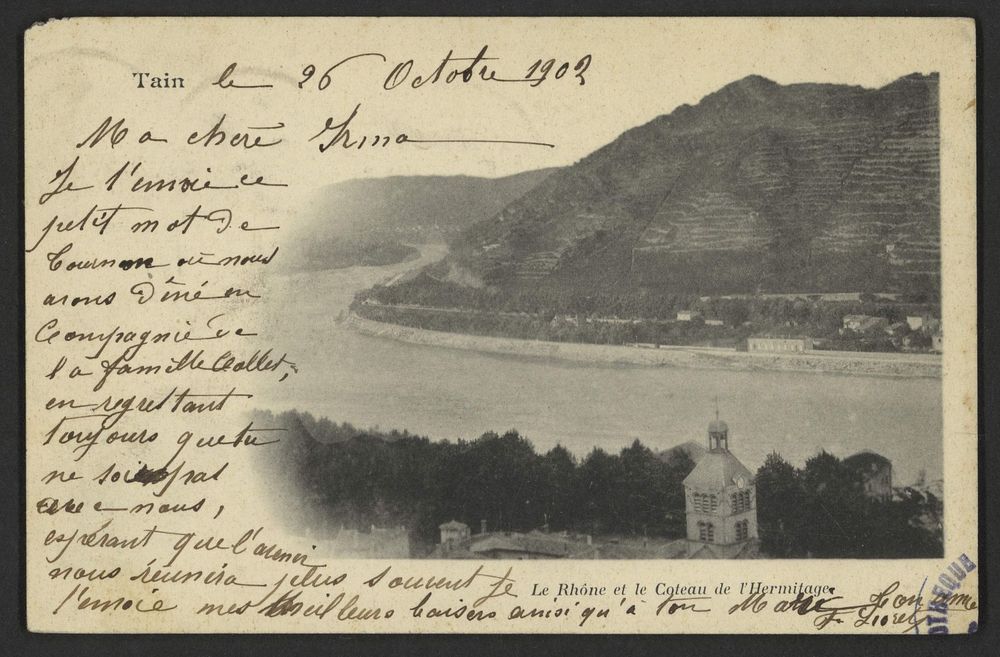 Tain le 26 Octobre 1902
Ma chère Irma
Je t'envoie ce
petit mot de
Tournon où nous
avons dîné en
Compagnie de
la famille Collet,
en regrettant
toujours que tu
ne sois pas
avec nous,
espérant que l'avenir
nous réunira plus souvent je
t'envoie mes meilleurs baisers ainsi qu'à ton Mari Ton amie
F.
Le Rhône et le Coteau de l'Hermitage.
OTHEQUE